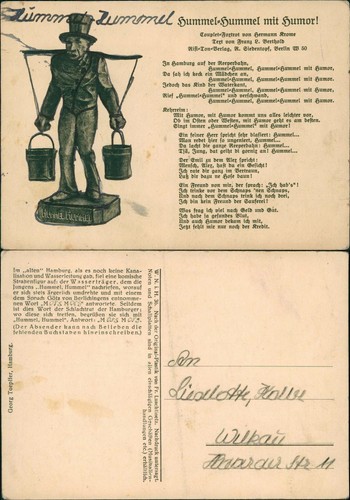 Hummel-Hummel
Hummel-Hummel mit Humor!
Couplet-Foxtrot von Hermann Krome
Text von Franz L. Berthold
Riff-Ton-Verlag, R. Siebentopf, Berlin W 50
In Hamburg auf der Reeperbahn,
Hummel-Hummel, Hummel-Hummel mit Humor,
Da sah ich keck ein Mädchen an,
Hummel-Hummel, Hummel-Hummel mit Humor,
Jedoch das Kind der Waterkant,
Hummel-Hummel, Hummel-Hummel mit Humor,
Rief „Hummel-Hummel“ und verschwand,
Hummel-Hummel, Hummel-Hummel mit Humor.
Kehrreim:
Mit Humor, mit Humor kommt uns alles leichter vor,
Ob im Osten oder Westen, mit Humor geht es am besten.
Singt immer „Hummel-Hummel“ mit Humor!
Ein feiner Herr spricht sehr blasiert: Hummel...
Man redet hier so ungeniert, Hummel...
Da lacht die ganze Reeperbahn: Hummel...
Tjä, Jung, dat geiht di gornix an! Hummel...
Der Emil zu dem Alex spricht:
Mensch, Alex, hast du ein Gesicht!
Ich rate dir ganz im Vertraun,
Laß dir dagn ne Hose baun!
Ein Freund von mir, der sprach: „Ich hab's“!
Ich trinke nur den Schnaps 'nen Schnaps,
Und nach dem Schnaps trink ich noch drei,
Ich bin kein Freund der Sauferei!
Was frag ich viel nach Geld und Gut.
Ich habe ja gesundes Blut,
Und auch Humor bekam ich mit,
Jetzt fehlt mir nur noch der Kredit.
HUMMEL-HUMMEL
Im „alten“ Hamburg, als es noch keine Kana-
lisation und Wasserleitung gab, fiel eine komische
Straßenfigur auf: der Wasserträger, dem die
Jungens „Hummel, Hummel“ nachriefen, worauf
er sich stets ärgerlich umdrehte und mit einem
dem Spruch Götz von Berlichingens entnommenen
Wort „M...S M...S“ antwortete. Seitdem
ist dies Wort der Schlachtruf der Hamburger;
wo diese sich treffen, begrüßen sie sich mit
„Hummel, Hummel“. Antwort: „M...S M...S“.
(Der Absender kann nach Belieben die
fehlenden Buchstaben hineinschreiben.)
Georg Topfer, Hamburg.
Nach der Original-Plastik
Nachdruck untersagt.
Noten und Schallplatten sind in allen einschlägigen Geschäften (Musikalien-
handlungen etc.) erhältlich.
An
Lieselotte, Kolbe
Wilkau